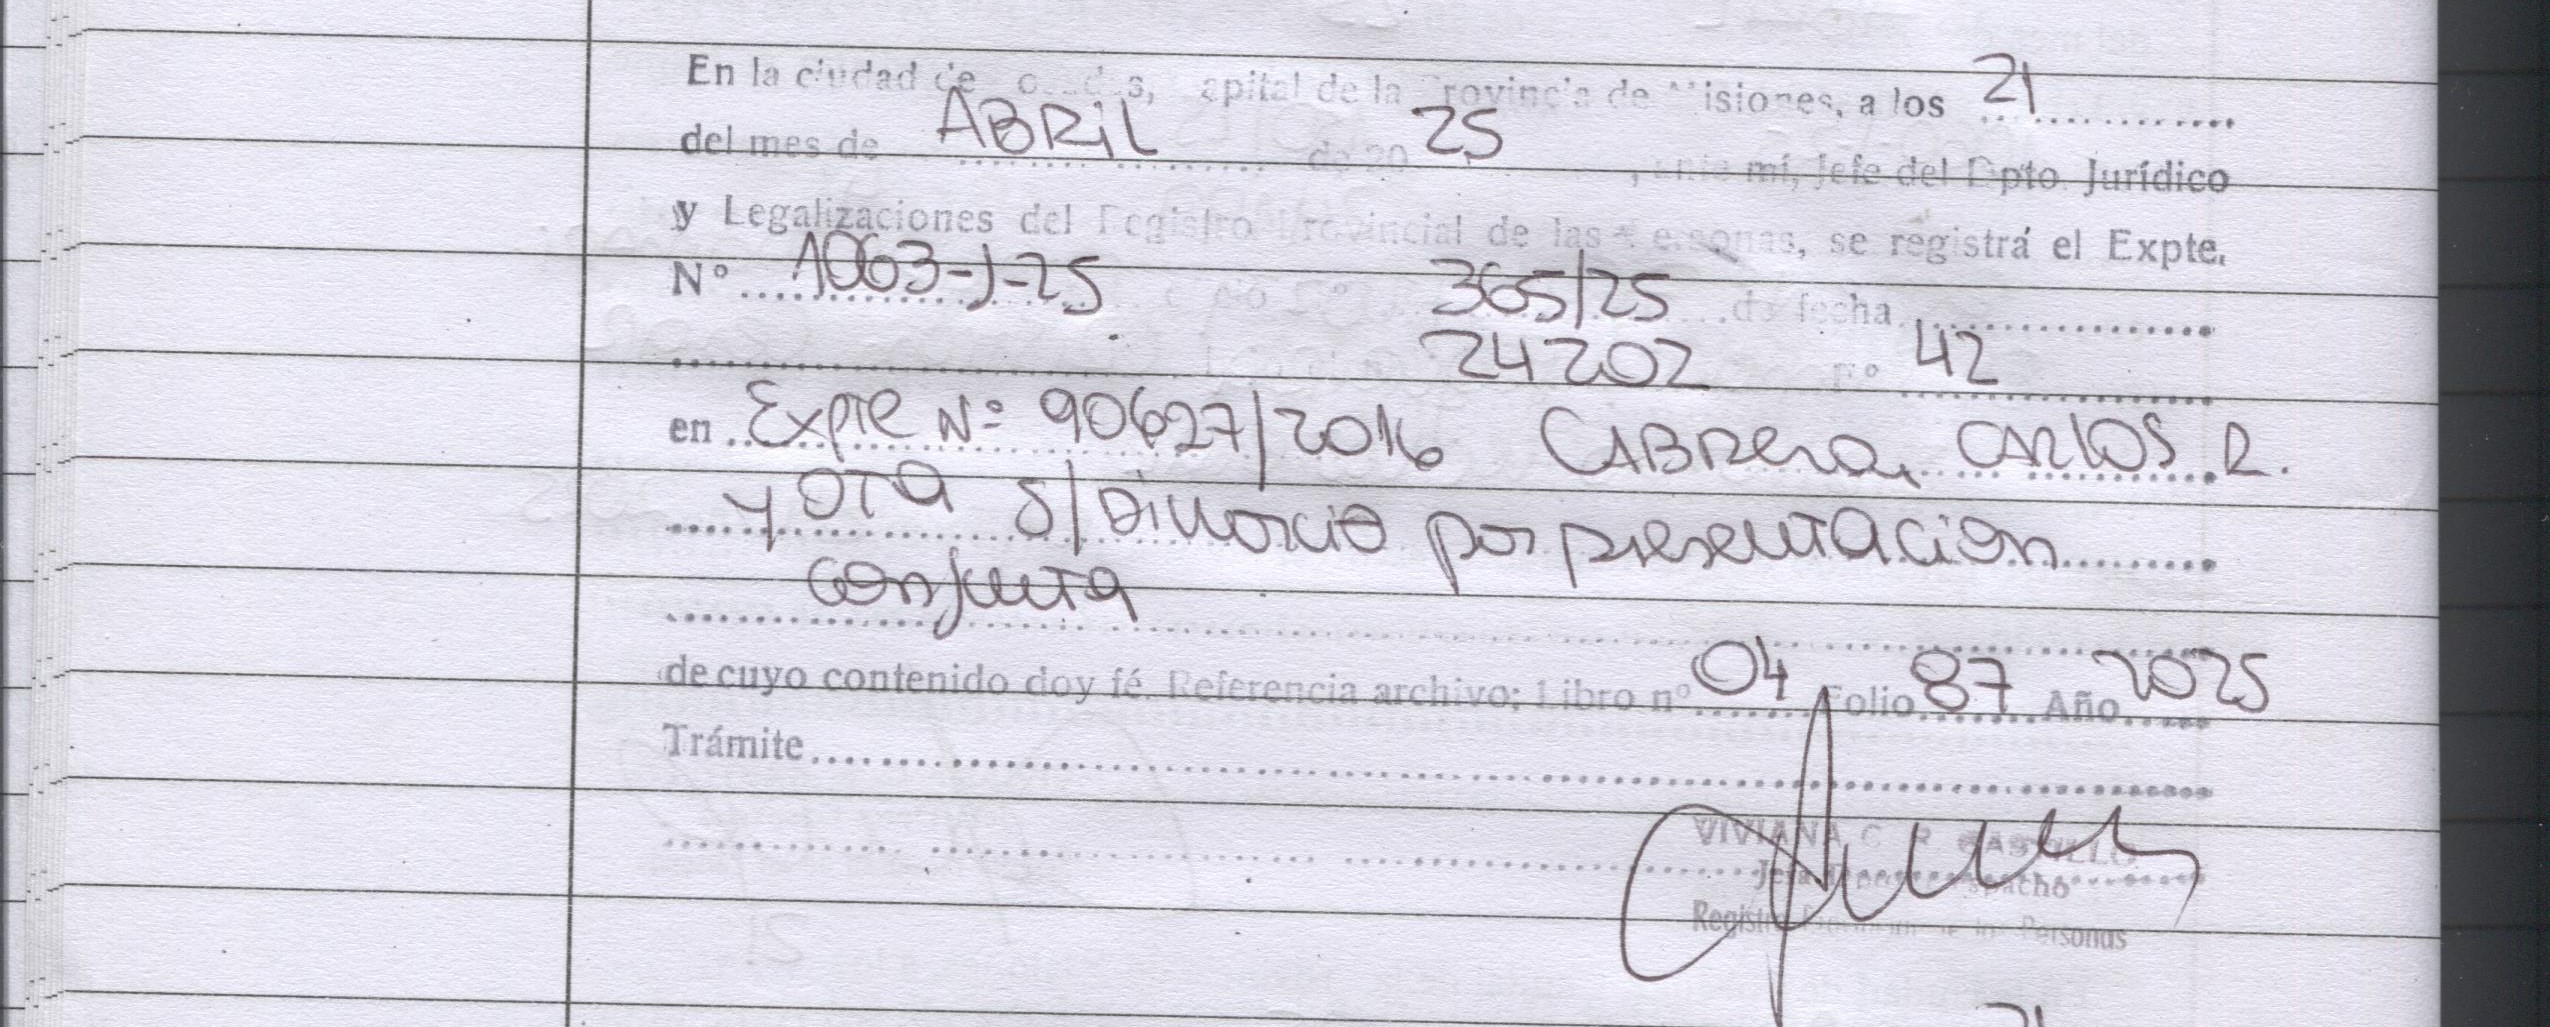 En la ciudad de Posadas, Capital de la Provincia de Misiones, a los 21
del mes de ABRIL de 20 25, ante mí, Jefe del Dpto Jurídico
y Legalizaciones del Registro Provincial de las Personas, se registrá el Expte.
Nº 1063-J-25 Oficio Nº 365/25 de fecha
24202 nº 42
en Expte Nº 90627/2016 CABRERA, CARLOS R.
y OTRA S/ Divorcio por presentacion
conjunta
de cuyo contenido doy fé. Referencia archivo: Libro nº 04 Folio 87 Año 2025
Trámite
VIVIANA C. R. CASTILLO
Jefa Despacho
Registro Provincial de las Personas
21